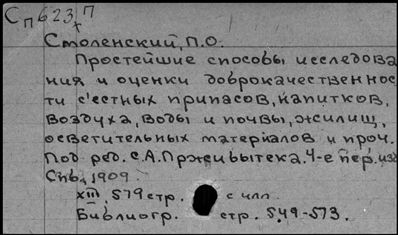 Сп623 П
Смоленский, П.О.
Простейшие способы исследова
ния и оценки доброкачественнос
ти с'естных припасов, напитков,
воздуха, воды и почвы, жилищ,
осветительных материалов и проч.
Под ред. С.А. Пржибытека. 4-е пер. изд
Спб, 1909.
XIII, 579 стр. с илл.
Библиогр. стр. 549-573.